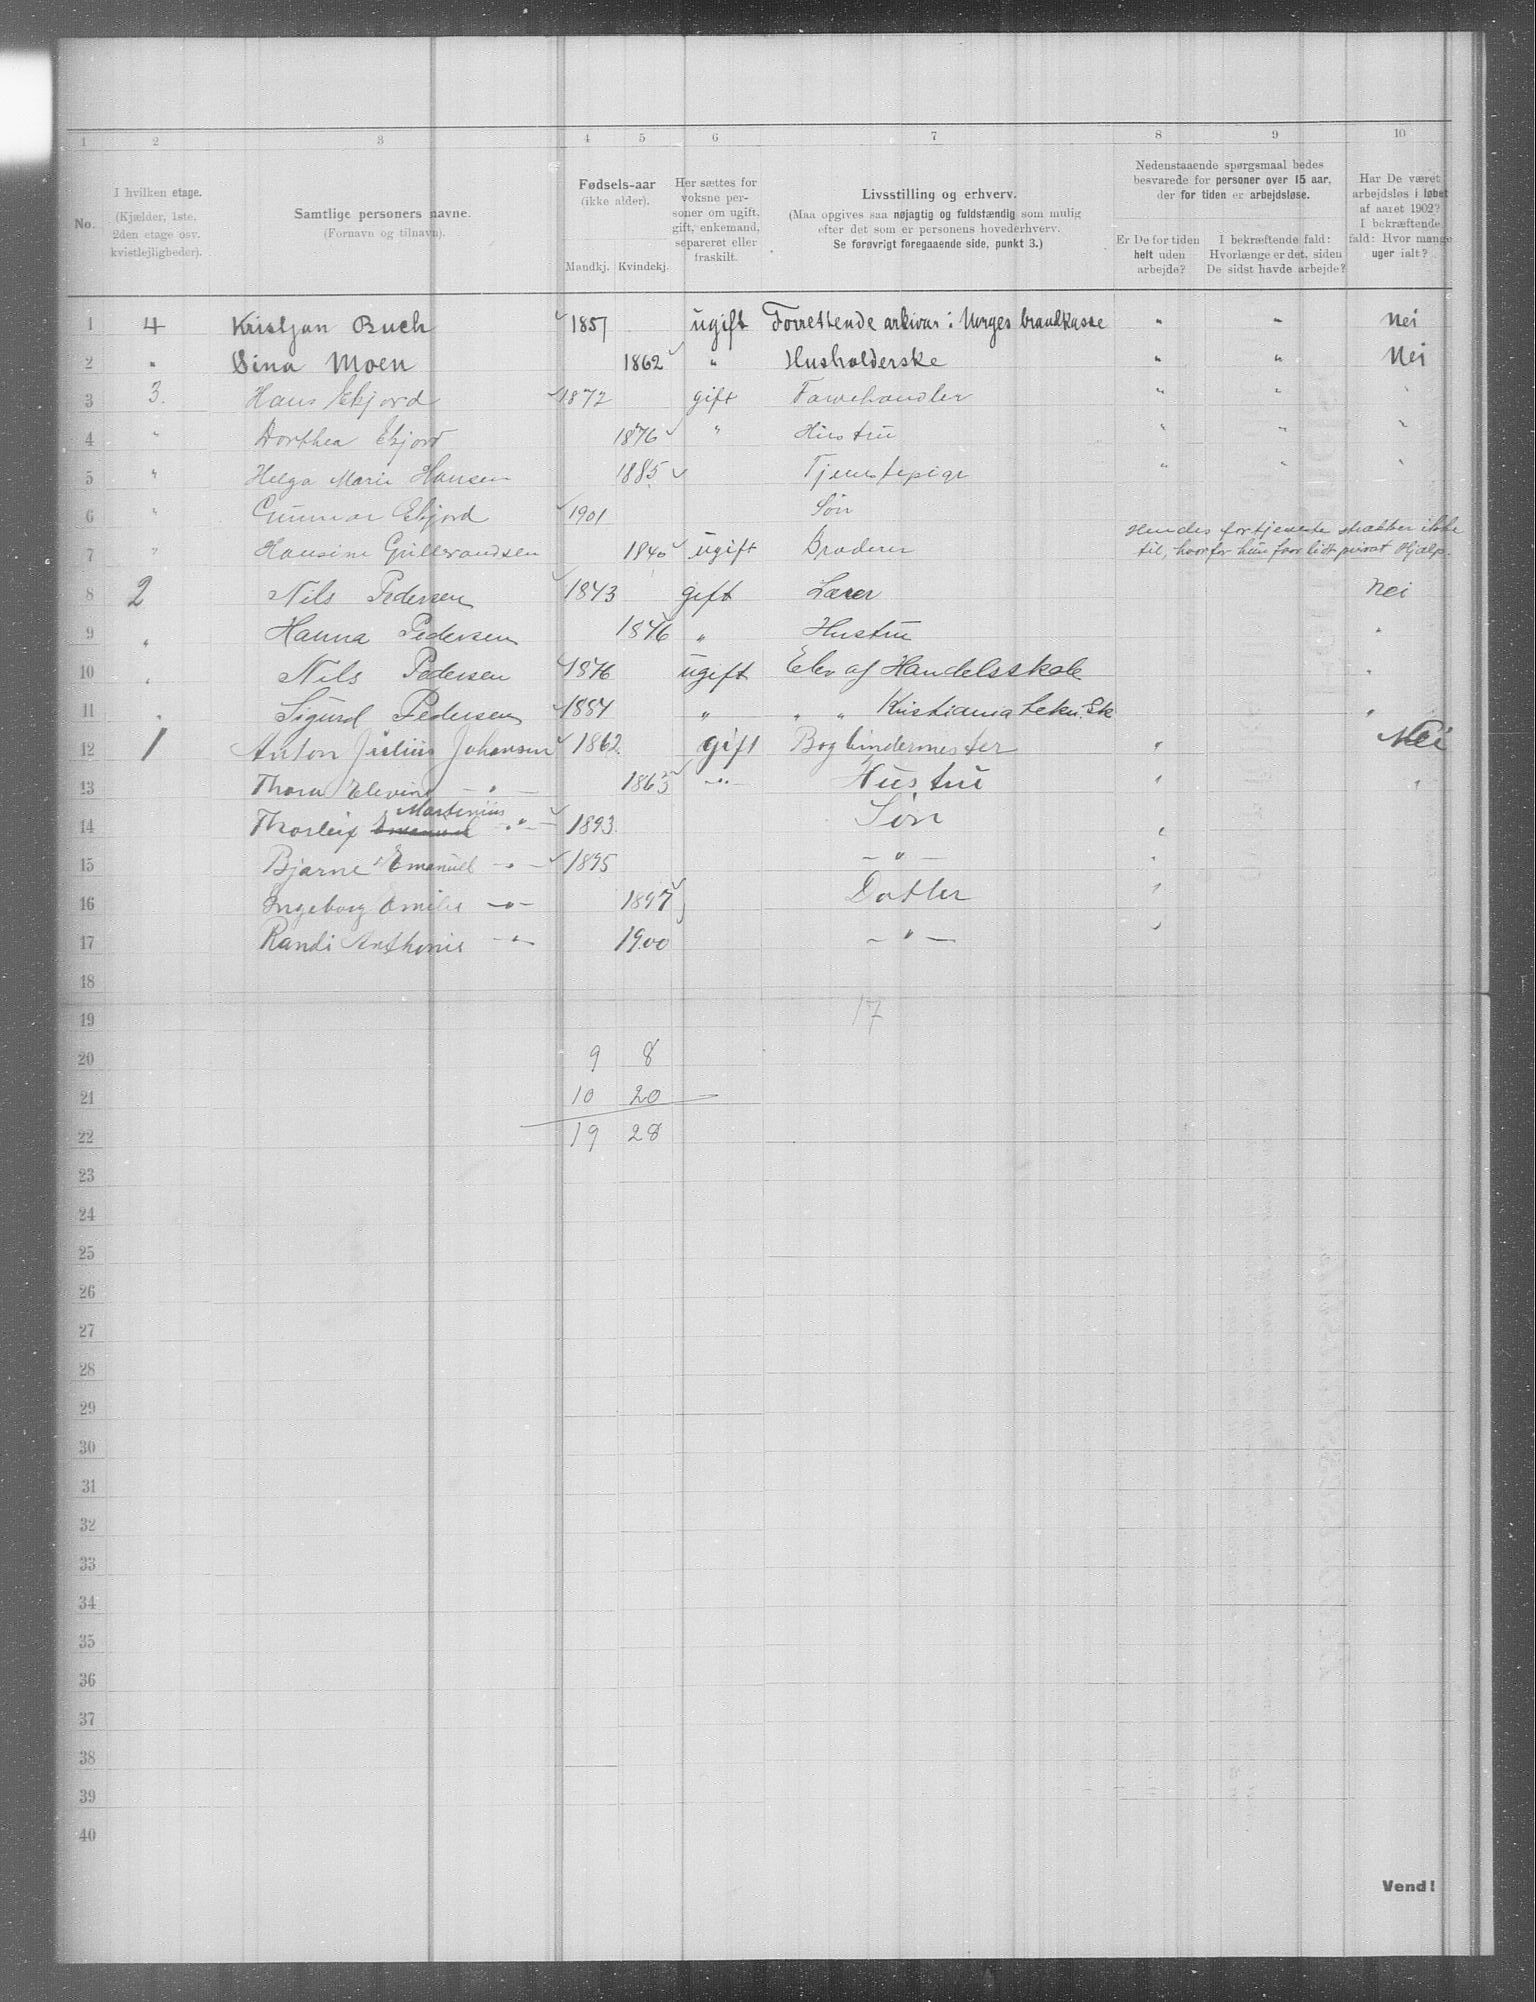 1 2 3 4 5 6 7 8 9 10
No.
I hvilken etage.
(Kjælder, 1ste, 2den etage osv. kvistlejligheder).
Samtlige personers navne.
(Fornavn og tilnavn).
Fødsels-aar
(ikke alder).
Mandkj. Kvindekj.
Her sættes for voksne personer om ugift, gift, enkemand, separeret eller fraskilt.
Livsstilling og erhverv.
(Maa opgives saa nøjagtig og fuldstændig som mulig efter det som er personens hovederhverv.
Se forøvrigt foregaaende side, punkt 3.)
Nedenstaaende spørgsmaal bedes besvarede for personer over 15 aar, der for tiden er arbejdsløse.
Er De for tiden helt uden arbejde?
I bekræftende fald: Hvorlænge er det, siden De sidst havde arbejde?
Har De været arbejdsløs i løbet af aaret 1902? I bekræftende fald: Hvor mange uger ialt?
1 4 Kristjan Buch 1857 ugift Forrettende arkivar i Norges brandkasse " " Nei
2 " Sina Moen 1862 " Husholderske " " Nei
3 3. Hans Ekjord 1872 gift Farvehandler " " "
4 " Dorthea Ekjord 1876 " Hustru " " "
5 " Helga Marie Hansen 1885 Tjenestepige " " "
6 " Gunnar Ekjord 1901 Søn
7 " Hansine 1840 ugift Broderer Hendes fortjeneste strækker ikke til, hvorfor hun faar lidt privat Hjælp.
8 2 Nils Pedersen 1843 gift Lærer Nei
9 " Hanna Pedersen 1846 " Hustru "
10 " Nils Pedersen 1876 ugift Elev af Handelsskole "
11 " Sigurd Pedersen 1884 " " " Kristiania tekn. Sk "
12 1 Anton Julius Johansen 1862 gift Bogbindermester " Nei
13 Thora Elevine — " — 1865 — " — Hustru " "
14 Thorleif Emanuel Martinius — " — 1893. Søn "
15 Bjarne Emanuel — " — 1895 — " — "
16 Ingeborg Emilie — " — 1897 Datter "
17 Randi Anthonie — " — 1900 — " — "
18
19 17
20 9 8
21 10 20
22 19 28
23
24
25
26
27
28
29
30
31
32
33
34
35
36
37
38
39
40
Vend!